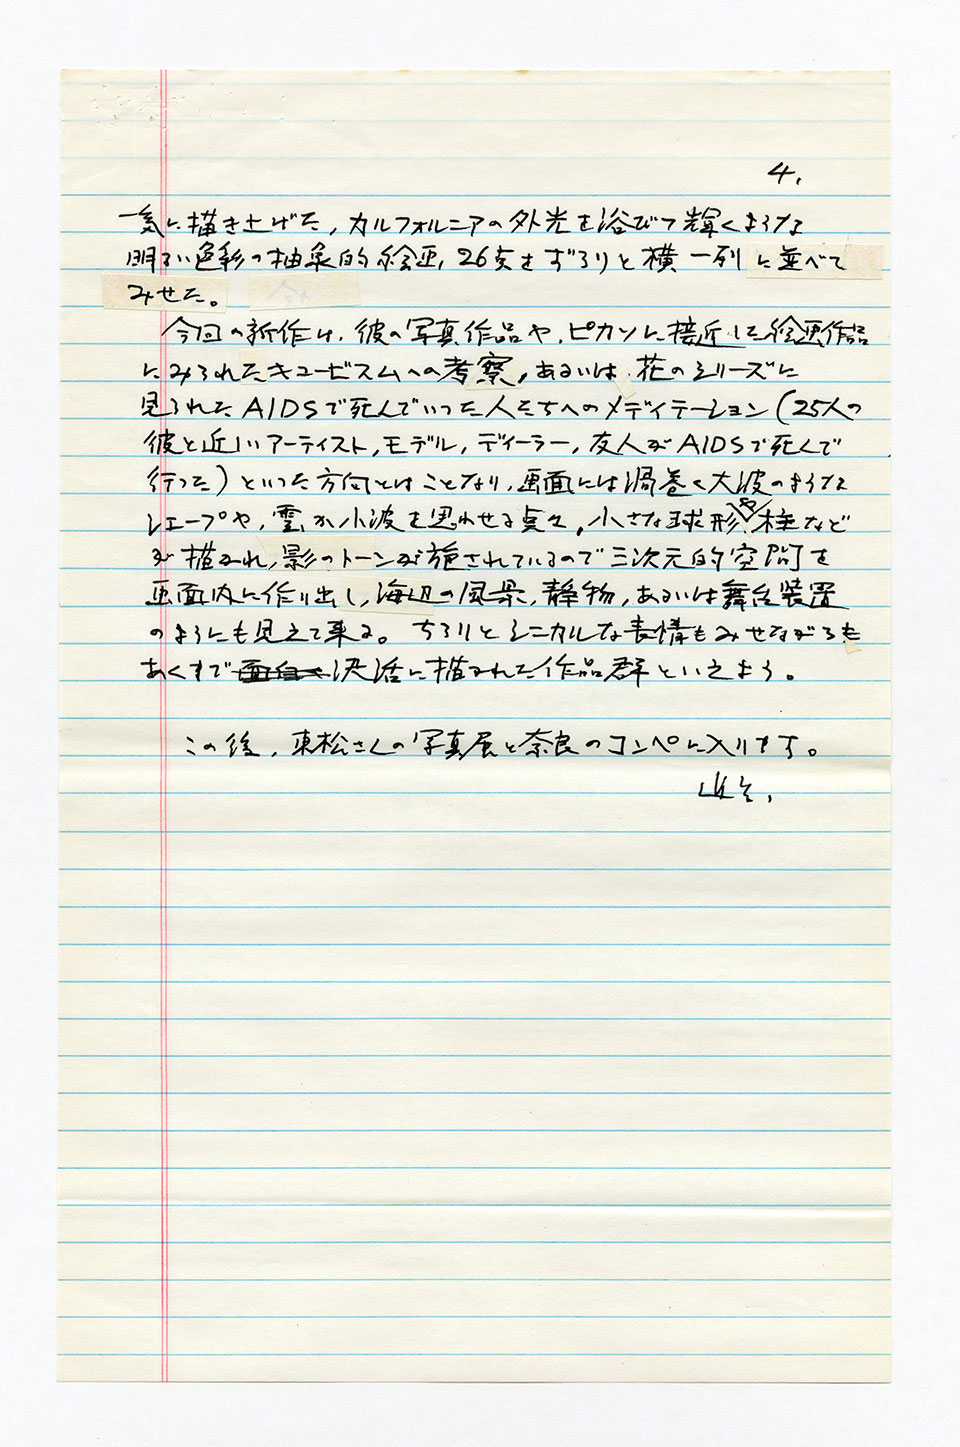 4.
一気に描き上げた，カルフォルニアの外光を浴びて輝くような
明るい色彩の抽象的絵画，26点をずらりと横一列に並べて
みせた。
今回の新作は，彼の写真作品や，ピカソに接近した絵画作品
にみられたキュービスムへの考察，あるいは花のシリーズに
見られたAIDSで死んでいった人たちへのメディテーション（25人の
彼と近しいアーティスト，モデル，ディーラー，友人がAIDSで死んで
行った）といった方向とはことなり，画面には渦巻く大波のような
シェープや，雲か小波を思わせる点々，小さな球形や柱など
が描かれ，影のトーンが施されているので三次元的空間を
画面内に作り出し，海辺の風景，静物，あるいは舞台装置
のようにも見えて来る。ちらりとシニカルな表情もみせながらも
あくまで面白く決活に描かれた作品群といえよう。
この後，東松さんの写真展と奈良のコンペに入ります。